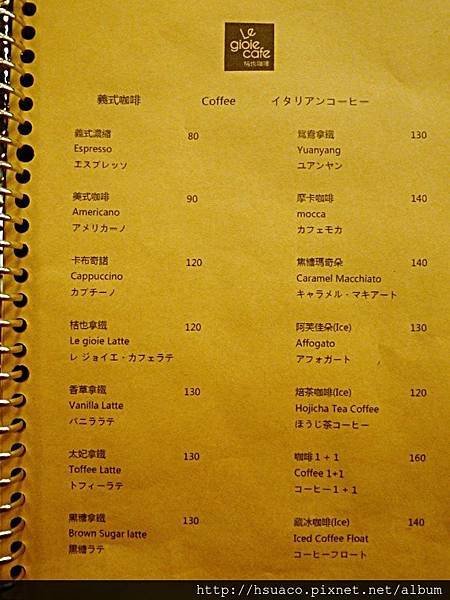 Le
gioie
cafe
桔也咖啡
義式咖啡 Coffee イタリアンコーヒー
義式濃縮 80
Espresso
エスプレッソ
美式咖啡 90
Americano
アメリカーノ
卡布奇諾 120
Cappuccino
カプチーノ
桔也拿鐵 120
Le gioie Latte
レ ジョイエ・カフェラテ
香草拿鐵 130
Vanilla Latte
バニララテ
太妃拿鐵 130
Toffee Latte
トフィーラテ
黑糖拿鐵 130
Brown Sugar latte
黒糖ラテ
鴛鴦拿鐵 130
Yuanyang
ユアンヤン
摩卡咖啡 140
mocca
カフェモカ
焦糖瑪奇朵 140
Caramel Macchiato
キャラメル・マキアート
阿芙佳朵(Ice) 130
Affogato
アフォガート
焙茶咖啡(Ice) 120
Hojicha Tea Coffee
ほうじ茶コーヒー
咖啡 1 + 1 160
Coffee 1+1
コーヒー 1 + 1
冰咖啡(Ice) 140
Iced Coffee Float
コーヒーフロート
http://hsuaco.pixnet.net/album